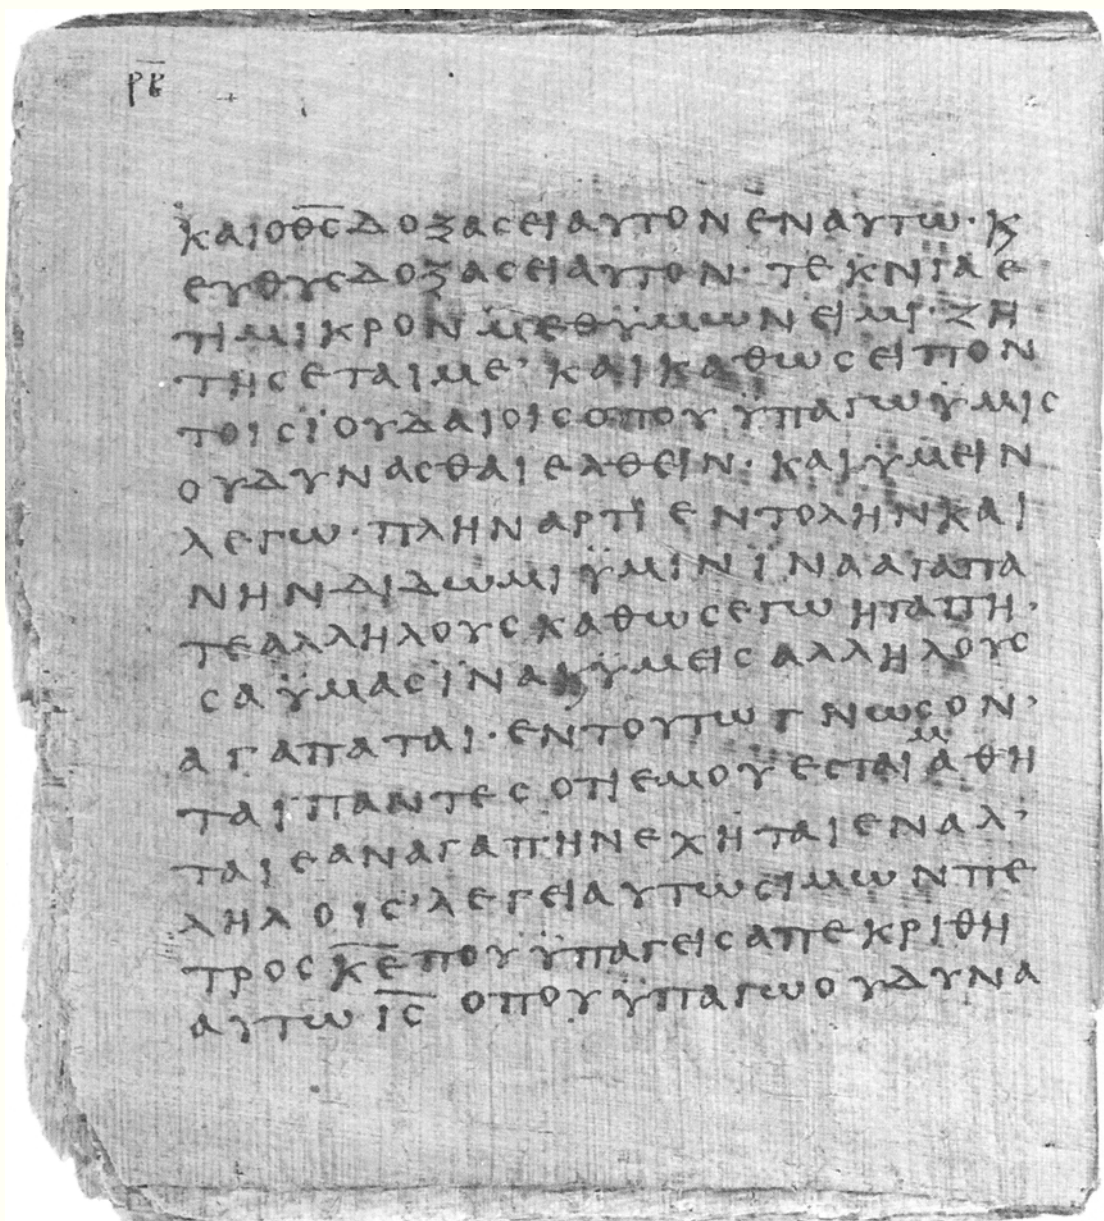 ρβ̅
ΚΑΙΟΘ̅Σ̅ΔΟΞΑΣΕΙΑΥΤΟΝΕΝΑΥΤΩ· Ϗ
ΕΥΘΥΣΔΟΞΑΣΕΙΑΥΤΟΝ· ΤΕΚΝΪΑΕ
ΤΙΜΙΚΡΟΝΜΕΘΫΜΩΝΕΙΜΙ· ΖΗ
ΤΗΣΕΤΑΙΜΕ’ ΚΑΙΚΑΘΩΣΕΙΠΟΝ
ΤΟΙΣΪΟΥΔΑΙΟΙΣΟΠΟΥΫΠΑΓΩΫΜΙΣ
ΟΥΔΥΝΑΣΘΑΙΕΛΘΕΙΝ· ΚΑΙΫΜΕΙΝ
ΛΕΓΩ· ΠΛΗΝΑΡΤΙΕΝΤΟΛΗΝΚΑΙ
ΝΗΝΔΙΔΩΜΙΫΜΙΝΪΝΑΑΓΑΠΑ
ΤΕΑΛΛΗΛΟΥΣΚΑΘΩΣΕΓΩΗΓΑΠΗ·
ΣΑΫΜΑΣΪΝΑΚΫΜΕΙΣΑΛΛΗΛΟΥΣ
ΑΓΑΠΑΤΑΙ· ΕΝΤΟΥΤΩΓΝΩΣΟΝ’
ΤΑΙΠΑΝΤΕΣΟΤΙΕΜΟΥΕΣΤΑΙΜΑΘΗ
ΤΑΙΕΑΝΑΓΑΠΗΝΕΧΗΤΑΙΕΝΑΛ’
ΛΗΛΟΙΣ’ ΛΕΓΕΙΑΥΤΩΣΙΜΩΝΠΕ
ΤΡΟΣΚ̅Ε̅ΠΟΥΫΠΑΓΕΙΣΑΠΕΚΡΙΘΗ
ΑΥΤΩΙ̅Σ̅ ΟΠΟΥΫΠΑΓΩΟΥΔΥΝΑ